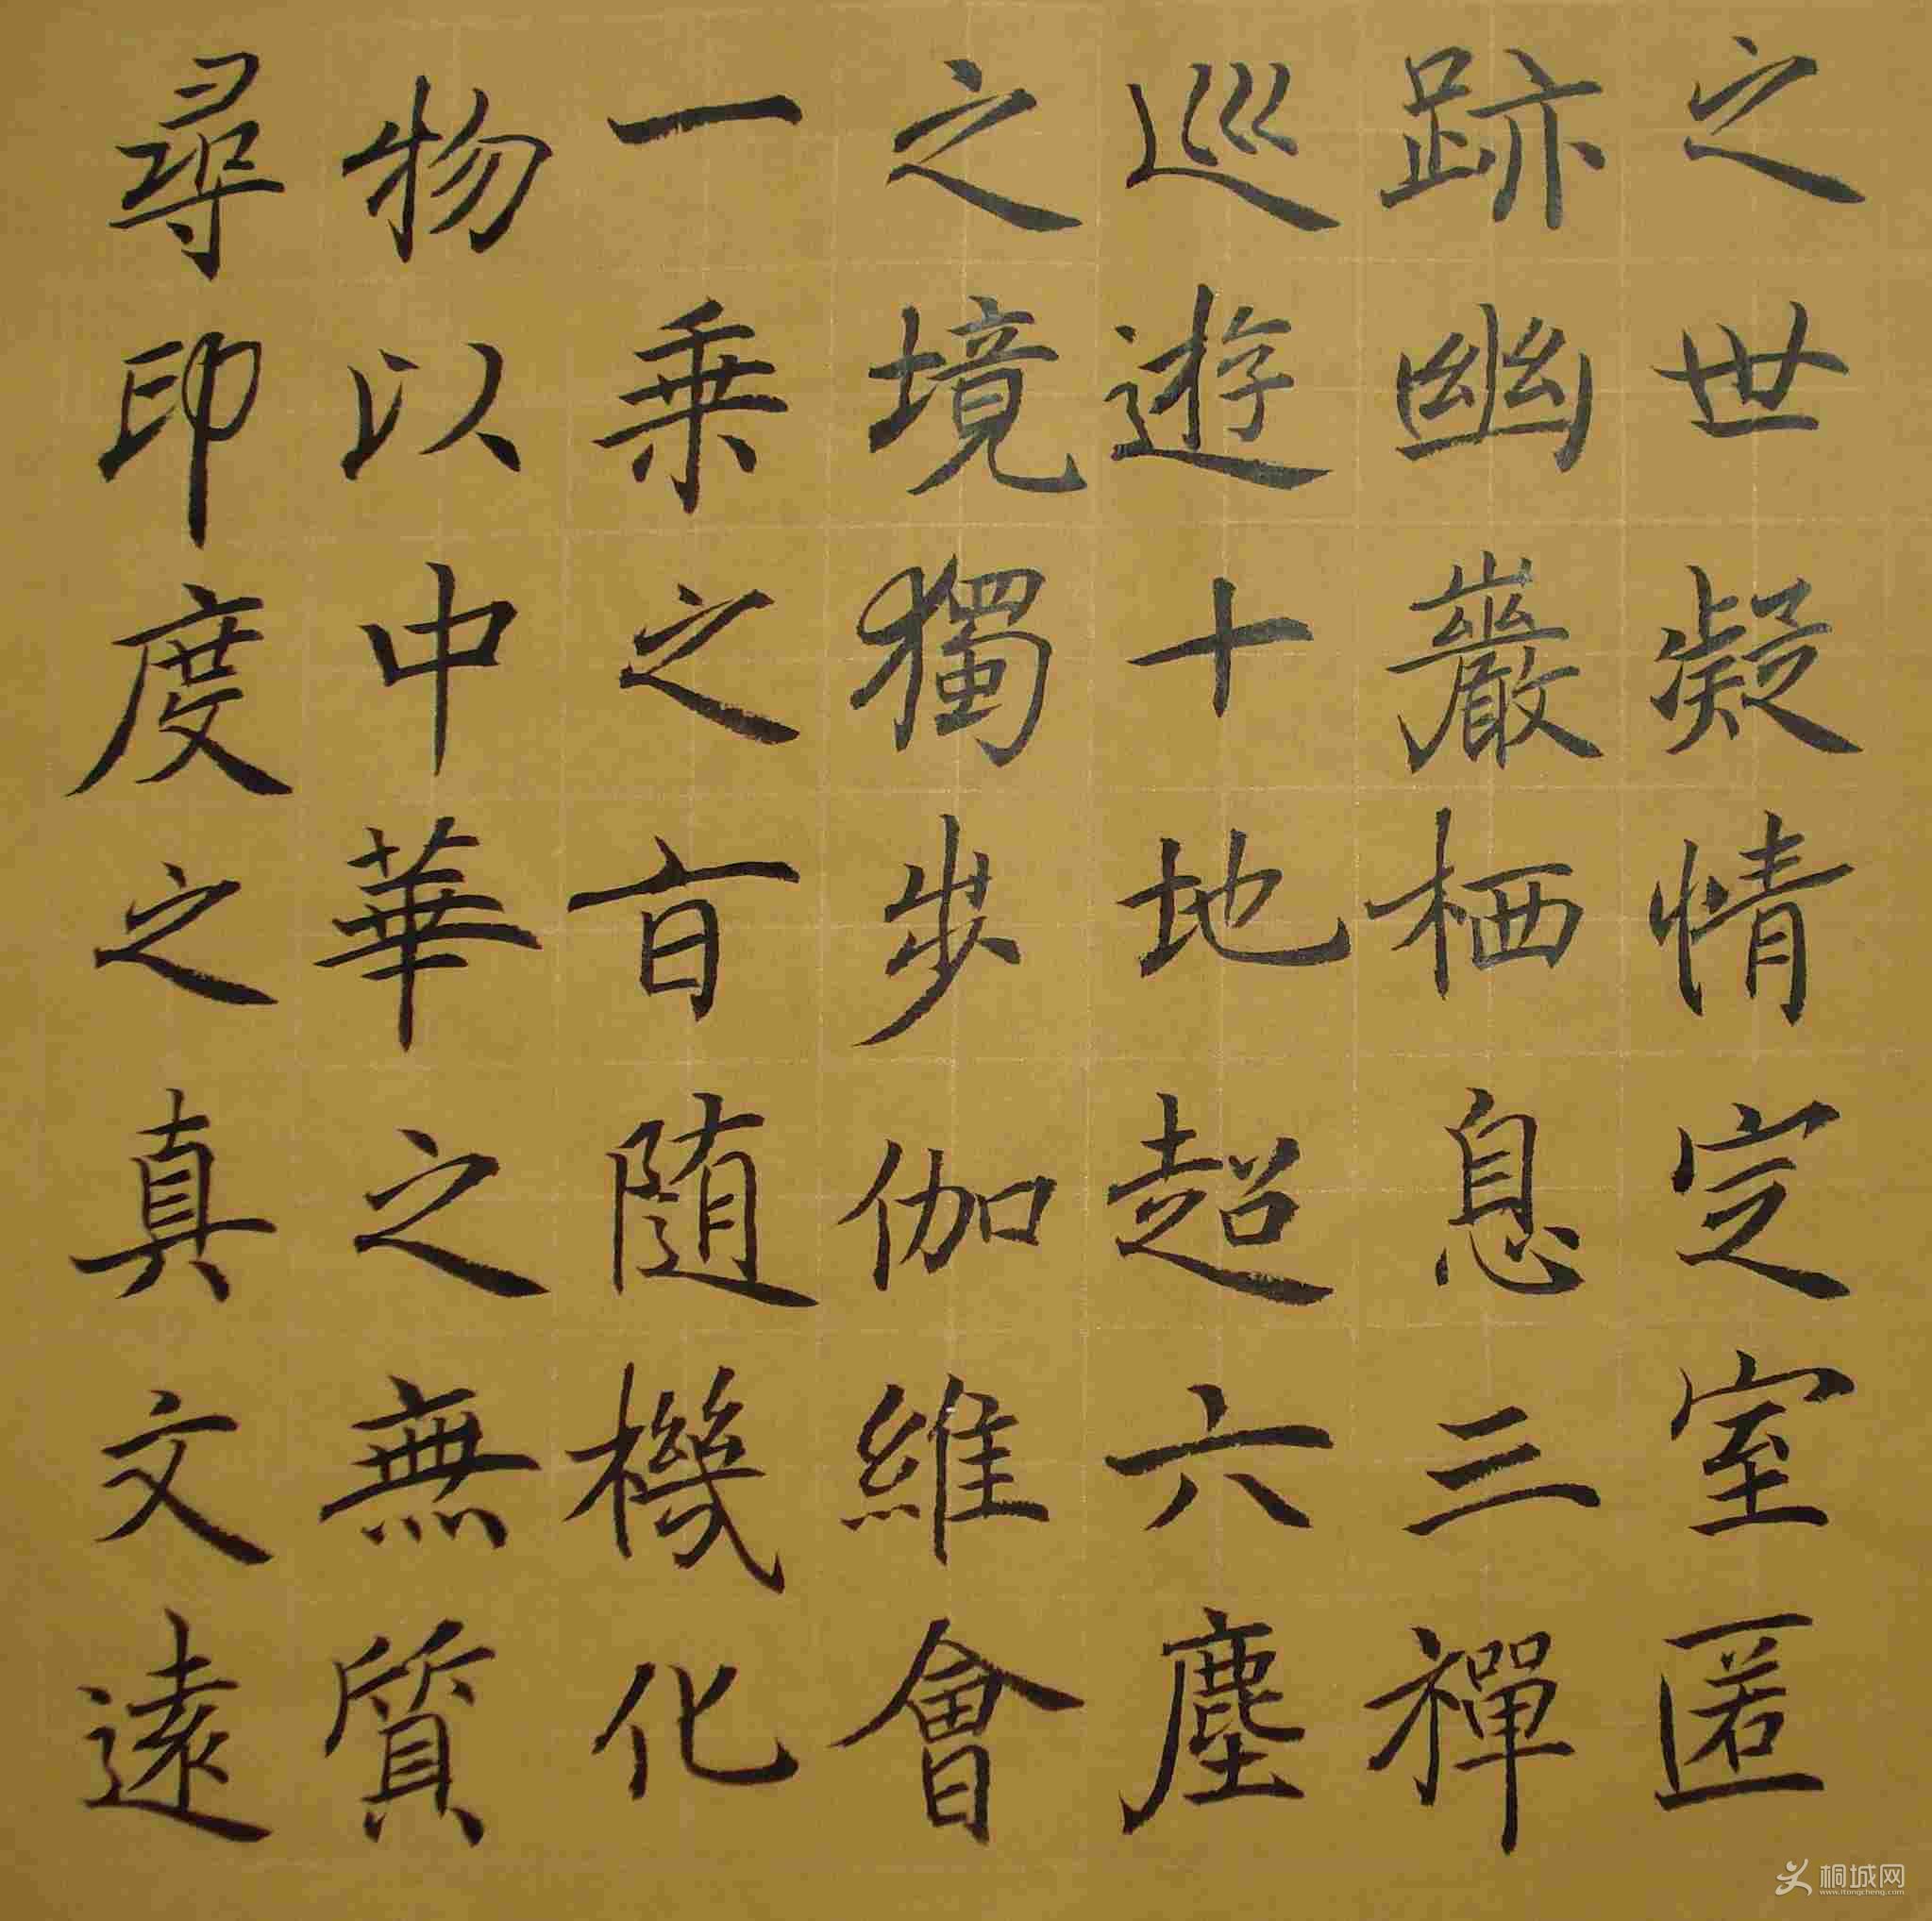 之世凝情定室匿
跡幽巖栖息三禪
巡遊十地超六塵
之境獨步伽維會
一乗之旨随機化
物以中華之無質
尋印度之真文遠
桐城网
www.itongcheng.com